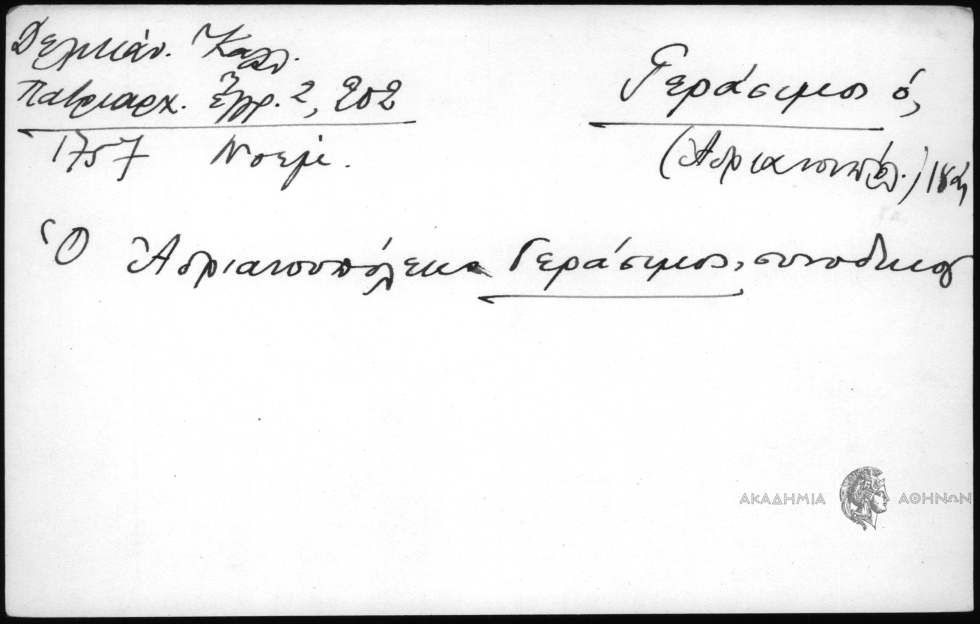 Δελικάν. Καλλ.
Πατριαρχ. Ἔγγρ. 2, 202
1757 Νοέμ.
Γεράσιμος ὁ,
(Ἀδριανουπόλ.) 18
Ὁ Ἀδριανουπόλεως Γεράσιμος, συνοδικοῦ
ΑΚΑΔΗΜΙΑ ΑΘΗΝΩΝ